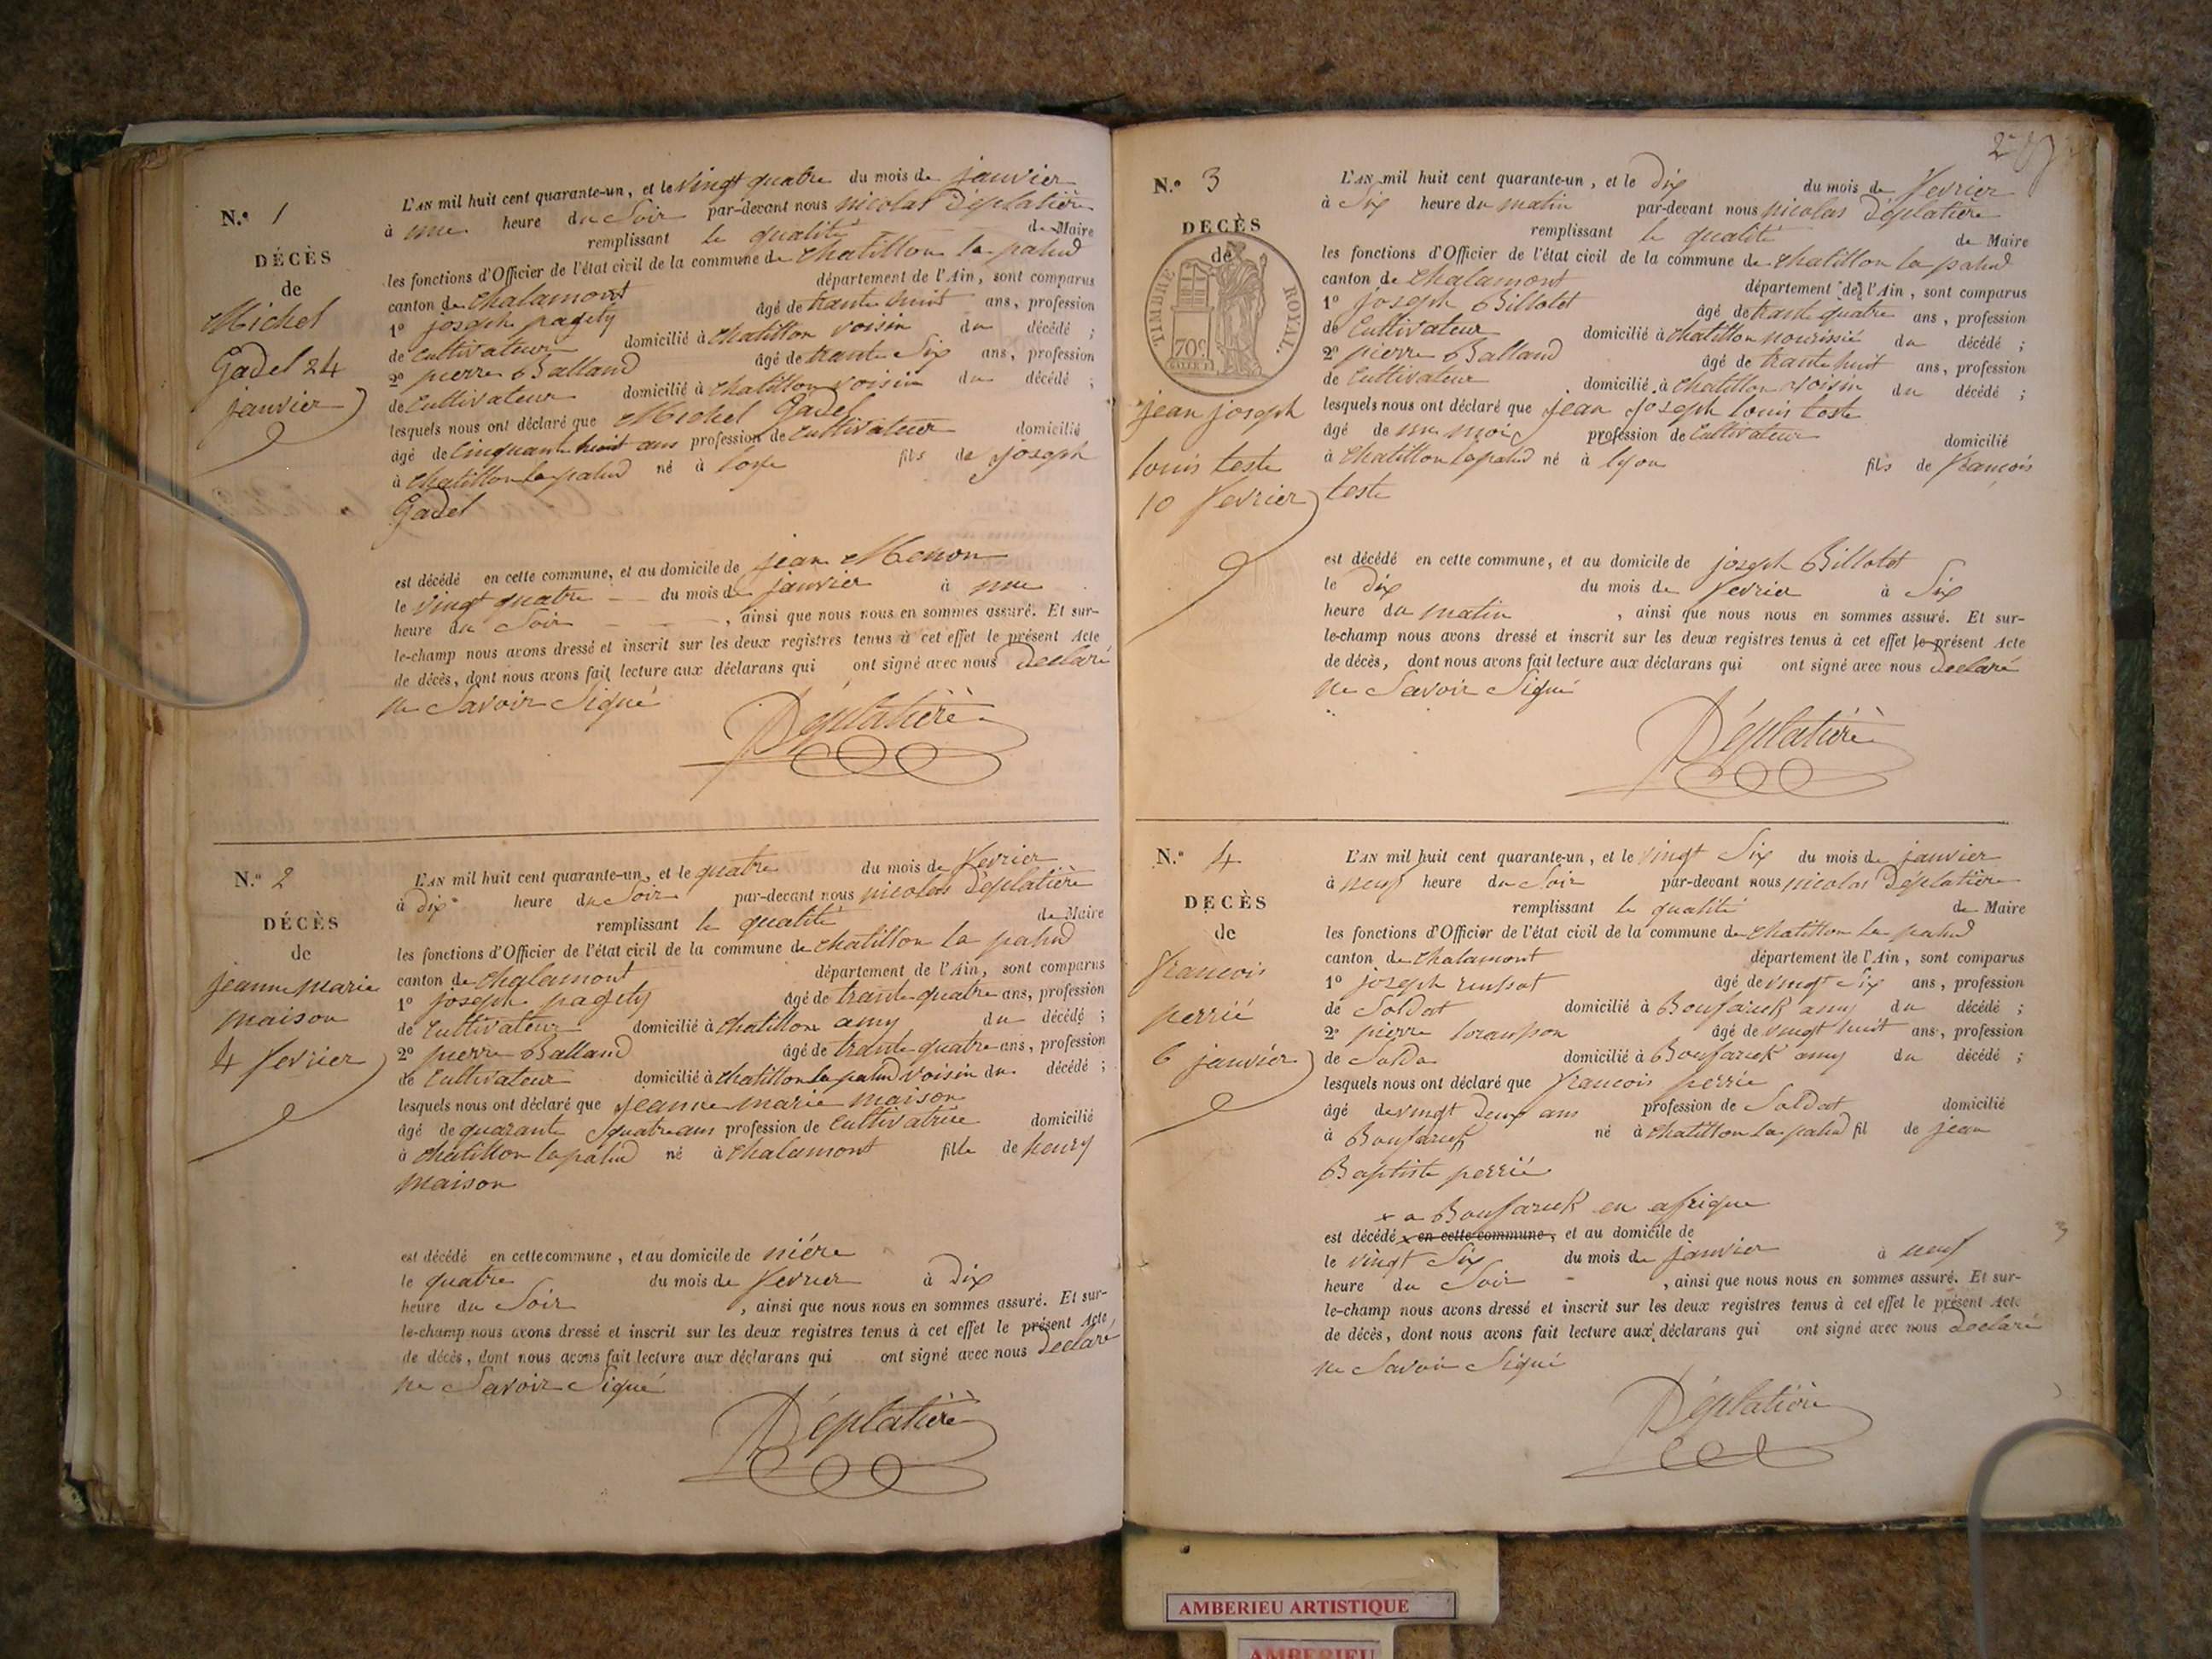 N.º 1
DÉCÈS
de
Michel
Gadel 24
janvier
L'AN mil huit cent quarante-un, et le vingt quatre du mois de janvier
à une heure du Soir par-devant nous nicolas Déplatière
remplissant le qualité de Maire
les fonctions d'Officier de l'état civil de la commune de chatillon la palud
canton de chalamont département de l'Ain, sont comparus
1º joseph pagety âgé de trante huit ans, profession
de Cultivateur domicilié à chatillon voisin du décédé ;
2º pierre Balland âgé de trante Six ans, profession
de Cultivateur domicilié à chatillon voisin du décédé ;
lesquels nous ont déclaré que Michel Gadel
âgé de Cinquante huit ans profession de Cultivateur domicilié
à chatillon la palud né à fils de joseph
Gadel
est décédé en cette commune, et au domicile de jean Menon
le vingt quatre du mois de janvier à une
heure du Soir , ainsi que nous nous en sommes assuré. Et sur-
le-champ nous avons dressé et inscrit sur les deux registres tenus à cet effet le présent Acte
de décès, dont nous avons fait lecture aux déclarans qui ont signé avec nous Declaré
ne Savoir Signé
Déplatière
N.º 2
DÉCÈS
de
jeanne marie
maison
4 fevrier
L'AN mil huit cent quarante-un, et le quatre du mois de fevrier
à dix heure du Soir par-devant nous nicolas Déplatière
remplissant le qualité de Maire
les fonctions d'Officier de l'état civil de la commune de chatillon la palud
canton de chalamont département de l'Ain, sont comparus
1º joseph pagety âgé de trante quatre ans, profession
de Cultivateur domicilié à chatillon amy du décédé ;
2º pierre Balland âgé de trante quatre ans, profession
de Cultivateur domicilié à chatillon la palud voisin du décédé ;
lesquels nous ont déclaré que jeanne marie maison
âgé de quarante quatre ans profession de Cultivatrice domicilié
à chatillon la palud né à chalamont fille de henry
maison
est décédé en cette commune, et au domicile de
le quatre du mois de fevrier à Dix
heure du Soir , ainsi que nous nous en sommes assuré. Et sur-
le-champ nous avons dressé et inscrit sur les deux registres tenus à cet effet le présent Acte
de décès, dont nous avons fait lecture aux déclarans qui ont signé avec nous Declaré
ne Savoir Signé
Déplatière
N.º 3
DECÈS
de
TIMBRE ROYAL.
70 c
jean joseph
louis teste
10 fevrier
L'AN mil huit cent quarante-un, et le dix du mois de fevrier
à Six heure du matin par-devant nous nicolas Déplatière
remplissant le qualité de Maire
les fonctions d'Officier de l'état civil de la commune de chatillon la palud
canton de chalamont département de l'Ain, sont comparus
1º joseph Billotet âgé de trante quatre ans, profession
de Cultivateur domicilié à chatillon nourissié du décédé ;
2º pierre Balland âgé de trante huit ans, profession
de Cultivateur domicilié à chatillon voisin du décédé ;
lesquels nous ont déclaré que jean joseph louis teste
âgé de un mois profession de Cultivateur domicilié
à chatillon la palud né à lyon fils de francois
teste
est décédé en cette commune, et au domicile de joseph Billotet
le dix du mois de fevrier à Six
heure du matin , ainsi que nous nous en sommes assuré. Et sur-
le-champ nous avons dressé et inscrit sur les deux registres tenus à cet effet le présent Acte
de décès, dont nous avons fait lecture aux déclarans qui ont signé avec nous Declaré
ne Savoir Signé
Déplatière
N.º 4
DECÈS
de
francois
perrié
6 janvier
L'AN mil huit cent quarante-un, et le vingt Six du mois de janvier
à neuf heure du Soir par-devant nous nicolas Déplatière
remplissant le qualité de Maire
les fonctions d'Officier de l'état civil de la commune de chatillon la palud
canton de chalamont département de l'Ain, sont comparus
1º joseph âgé de vingt Six ans, profession
de Soldat domicilié à Boufarick amy du décédé ;
2º pierre âgé de vingt huit ans, profession
de Solda domicilié à Boufarick amy du décédé ;
lesquels nous ont déclaré que francois perrié
âgé de vingt Deux ans profession de Soldat domicilié
à Boufarick né à chatillon la palud fil de jean
Baptiste perrié
x a Boufarick en afrique
est décédé x en cette commune, et au domicile de
le vingt Six du mois de janvier à neuf
heure du Soir , ainsi que nous nous en sommes assuré. Et sur-
le-champ nous avons dressé et inscrit sur les deux registres tenus à cet effet le présent Acte
de décès, dont nous avons fait lecture aux déclarans qui ont signé avec nous Declaré
ne Savoir Signé
Déplatière
AMBERIEU ARTISTIQUE
AMBERIEU